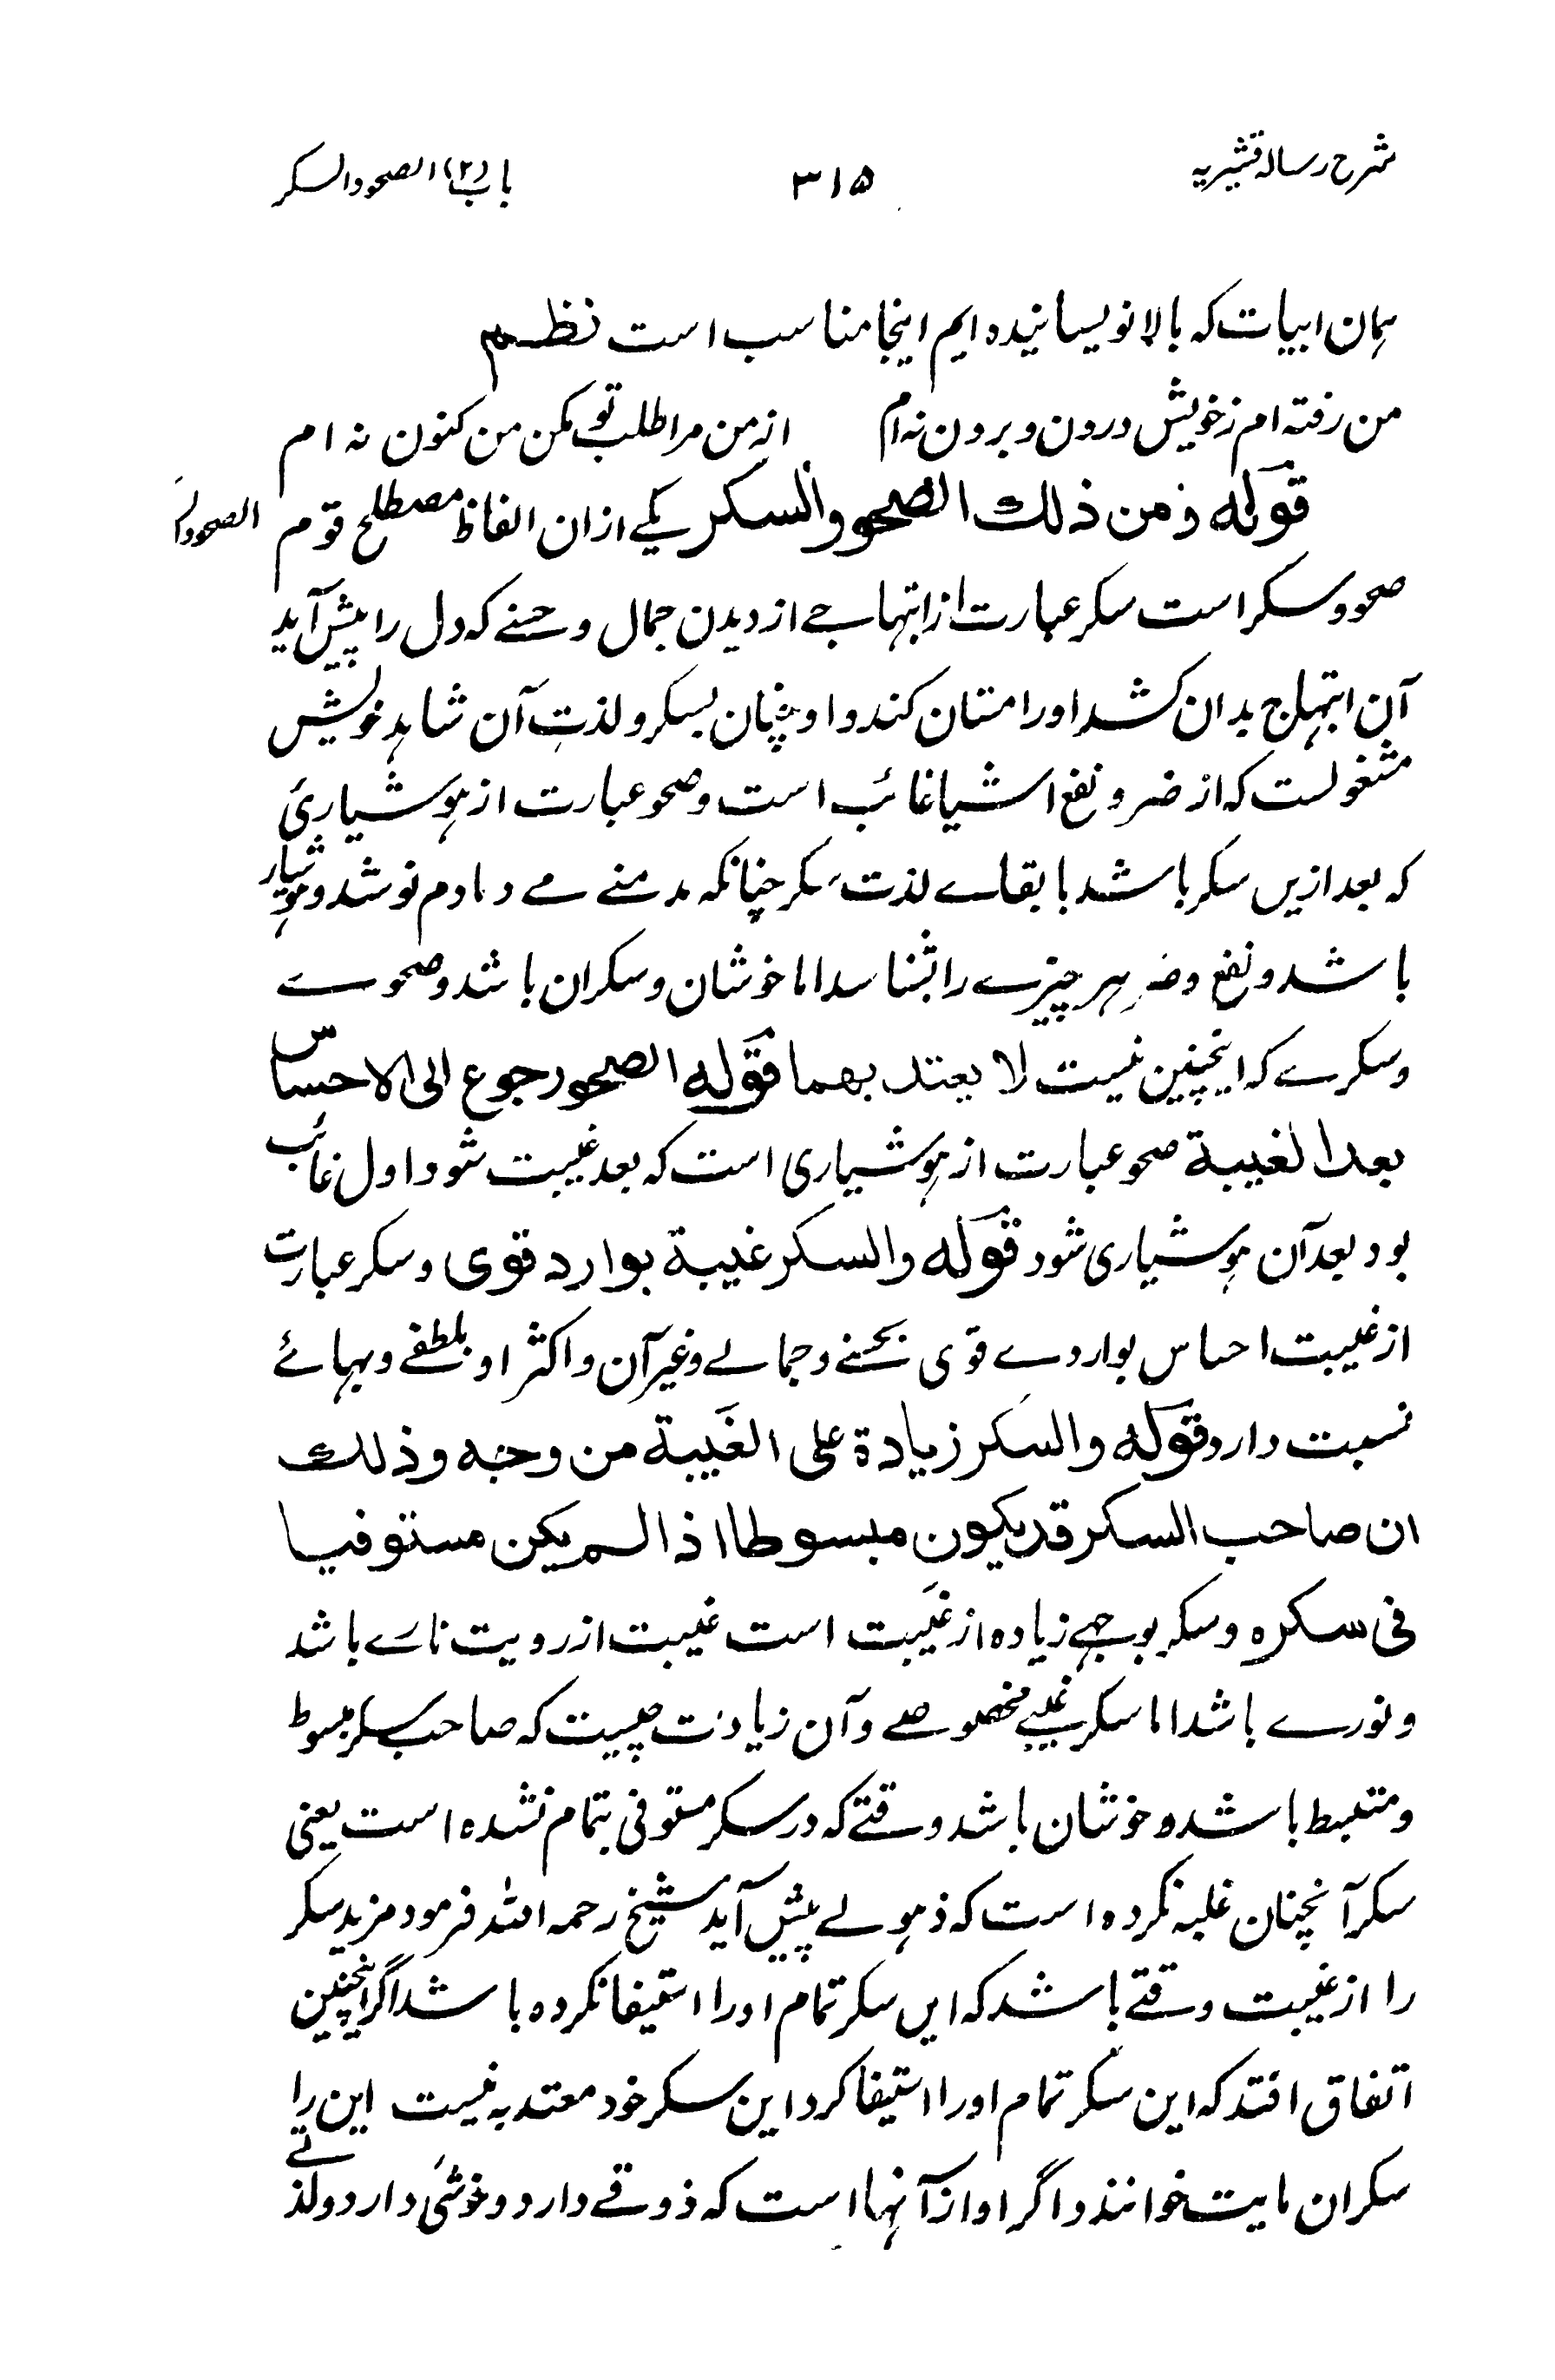 شرح رسالہ قشیریہ ۳۱۵ باب (۲) الصحو والسکر
ہمان ابیات کہ بالا نویسانیدہ ایم اینجا مناسب است نظم
من رفتہ ام زخویش درون و برون نہ ام از من مرا طلب تو مکن من کنون نہ ام
قوله ومن ذلك الصحو والسکر یکے ازان الفاظ مصطلح قوم
صحو و سکر است سکر عبارت از ابتہاجے از دیدن جمال و حسنے کہ دل را پیش آید
آن ابتہاج بدان کشد اورا مستان کند و او چنان بسکر و لذت آن شاہد خویش
مشغولست کہ از ضر و نفع اشیا غائب است و صحو عبارت از ہوشیاریٔ
کہ بعد ازیں سکر باشد با بقاے لذت سکر چنانکہ مدمنے مے دمادم نوشد و ہوشیار
باشد و نفع و ضر ہر چیزے را بشناسد اما خوشان و سکران باشد و صحوے
و سکرے کہ اینچنین نیست لا یعتد بهما قوله الصحو رجوع الی الاحساس
بعد الغیبة صحو عبارت از ہوشیاری است کہ بعد غیبت شود اول غائب
بود بعد آن ہوشیاری شود قوله والسکر غیبة بوارد قوی و سکر عبارت
از غیبت احساس بواردے قوی بحسنے و جمالے و غیر آن و اکثر او بلطفے و بہائے
نسبت دارد قوله والسکر زیادة علی الغَیبة من وجه وذلك
ان صاحب السکر قد یکون مبسوطا اذا لم یکن مستوفیا
فی سکره و سکر بوجہے زیادہ از غَیبت است غیبت از رویت نارے باشد
و نورے باشد اما سکر غیبے مخصوصے و آن زیادت چیست کہ صاحب سکر مبسوط
و منبسط باشد و خوشان باشد وقتے کہ در سکر مستوفی بتمام نشدہ است یعنی
سکر آنچنان غلبہ نکردہ است کہ ذہولے پیش آید شیخ رحمہ اللہ فرمود مزید سکر
را از غیبت وقتے باشد کہ ایں سکر تمام اورا استیفا نکردہ باشد اگر اینچنین
اتفاق افتد کہ این سکر تمام اورا استیفا کرد این سکر خود معتد بہ نیست این را
سکران مایت خوانند و اگر او از آنہا است کہ ذوقے دارد و خوشیٔ دارد و لذتے